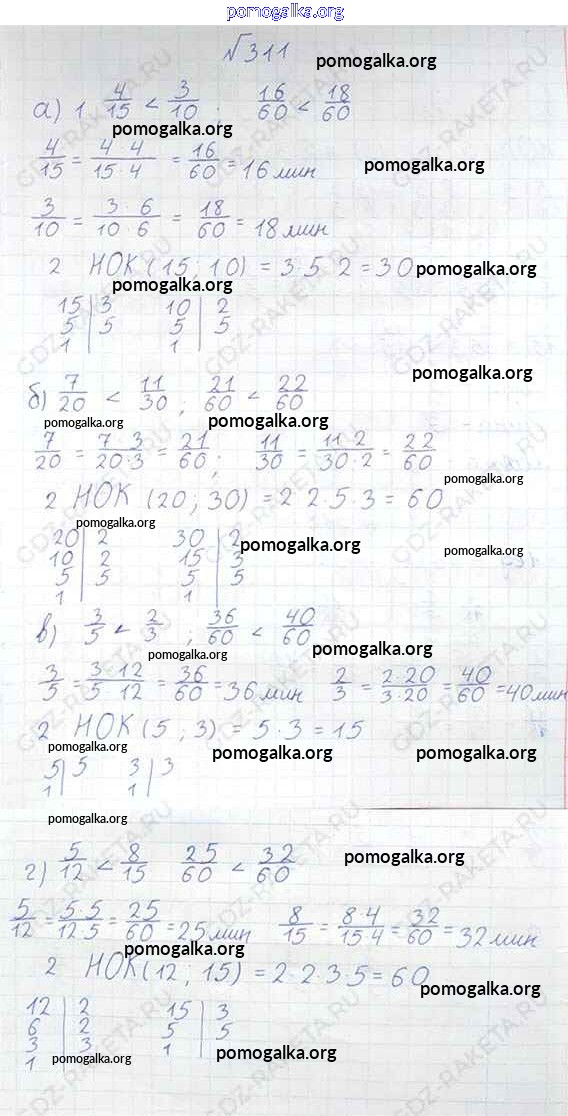 pomogalka.org
√311
pomogalka.org
а) 1. 4/15 < 3/10 ; 16/60 < 18/60
pomogalka.org
4/15 = 4 4/15·4 = 16/60 = 16 мин
pomogalka.org
3/10 = 3·6/10·6 = 18/60 = 18 мин
2 НОК (15; 10) = 3·5·2 = 30
pomogalka.org
pomogalka.org
15|3 10|2
5|5 5|5
1| 1|
pomogalka.org
б) 7/20 < 11/30 ; 21/60 < 22/60
pomogalka.org pomogalka.org
7/20 = 7·3/20·3 = 21/60 ; 11/30 = 11·2/30·2 = 22/60
pomogalka.org
2 НОК (20; 30) = 2·2·5·3 = 60
pomogalka.org
20|2 30|2
pomogalka.org
10|2 15|3
pomogalka.org
5|5 5|5
1| 1|
в) 3/5 < 2/3 ; 36/60 < 40/60
pomogalka.org pomogalka.org
3/5 = 3·12/5 12 = 36/60 = 36 мин 2/3 = 2·20/3·20 = 40/60 = 40 мин
2 НОК (5; 3) = 5·3 = 15
pomogalka.org pomogalka.org pomogalka.org
5|5 3|3
1| 1|
pomogalka.org
г) 5/12 < 8/15 25/60 < 32/60
pomogalka.org
5/12 = 5·5/12·5 = 25/60 = 25 мин 8/15 = 8·4/15 4 = 32/60 = 32 мин
pomogalka.org
2 НОК (12; 15) = 2·2·3·5 = 60
pomogalka.org
12|2 15|3
6|2 5|5
3|3 1|
1|
pomogalka.org pomogalka.org
GDZ-RAKETA.RU